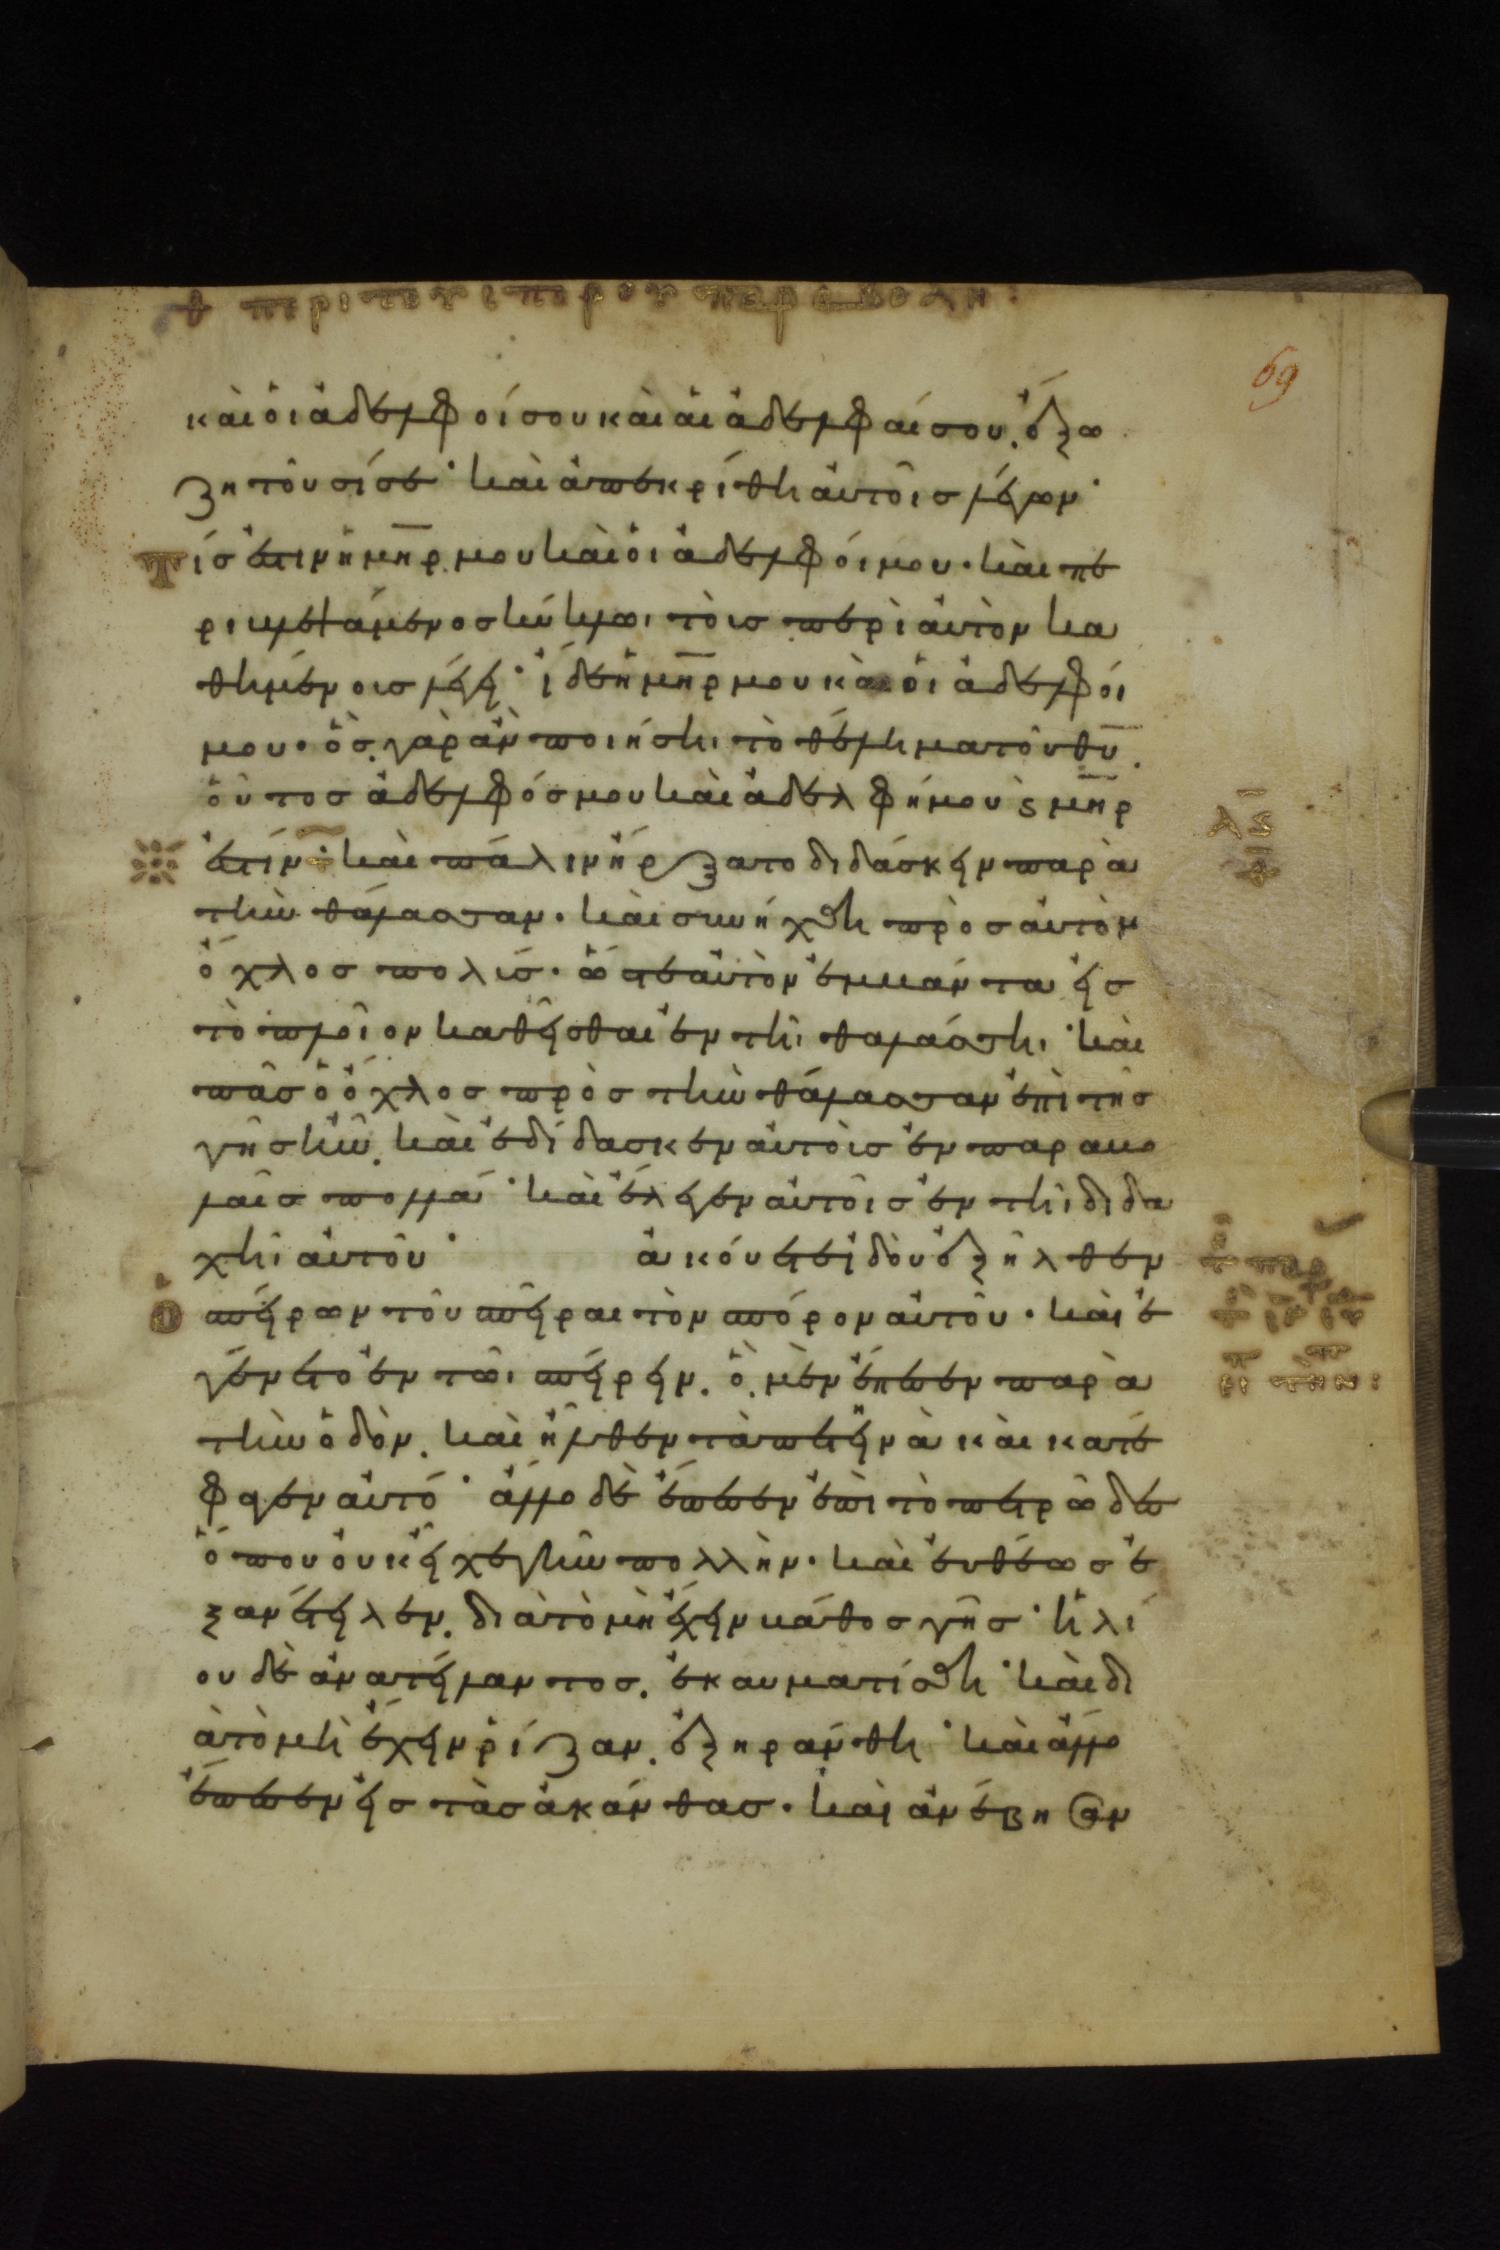 θ περι του σπορου παραβολη:
69
και ὁι ἀδελφοί σου και ἁι ἀδελφαί σου. ἔξω
ζητοῦσί σε· και ἀπεκρίθη ἀυτοῖσ λέγων·
Τίσ ἐστιν ἡ μ̅η̅ρ μου και ὁι ἀδελφόι μου· και πε
ριβλεψάμενοσ κύκλωι τοὺσ περὶ ἀυτὸν κα
θημένουσ λέγει· ἴδε ἡ μ̅η̅ρ μου κὰι ὁι ἀδελφόι
μου· ὃσ γὰρ ἂν ποιήσηι τὸ θέλημα τοῦ θ̅υ̅.
ὁῦτοσ ἀδελφόσ μου και ἀδελφή μου ϛ μ̅η̅ρ
ἐστίν· και πάλιν ἤρξατο διδάσκειν παρὰ
τὴν θάλασσαν· και συνήχθη πρὸσ ἀυτὸν
ὄχλοσ πολύσ· ὥστε ἀυτὸν ἐμβάντα ἐισ
τὸ πλοῖον καθῆσθαι ἐν τῆι θαλάσσηι· και
πᾶσ ὁ ὄχλοσ πρὸσ τὴν θάλασσαν ἐπὶ τῆσ
γῆσ ἦν. και ἐδίδασκεν ἀυτοὺσ ἐν παραβο
λαῖσ πολλά· και ἔλεγεν ἀυτοῖσ ἐν τῆι διδα
χῆι ἀυτοῦ· ἀκούετε ἰδοὺ ἐξῆλθεν
ὁ σπείρων τοῦ σπεῖραι τὸν σπόρον ἀυτοῦ· και ἐ
γένετο ἐν τῶι σπείρειν. ὃ μὲν ἔπεσεν παρὰ
τὴν ὁδὸν. και ἦλθεν τὰ πετεινὰ κὰι κατέ
φαγεν ἀυτό· ἄλλο δὲ ἔπεσεν ἐπὶ τὸ πετρῶδεσ
ὅπου ὀυκ εἶχε γῆν πολλὴν· και ἐυθέωσ ἐ
ξανέτειλεν. διὰ τὸ μὴ ἔχειν βάθοσ γῆσ· ἡλί
ου δὲ ἀνατείλαντοσ. ἐκαυματίσθη· και δι
ὰ τὸ μὴ ἔχειν ῥίζαν. ἐξηράνθη· και ἄλλο
ἔπεσεν ἐισ τὰσ ἀκάνθασ· και ἀνέβησαν
λϛ